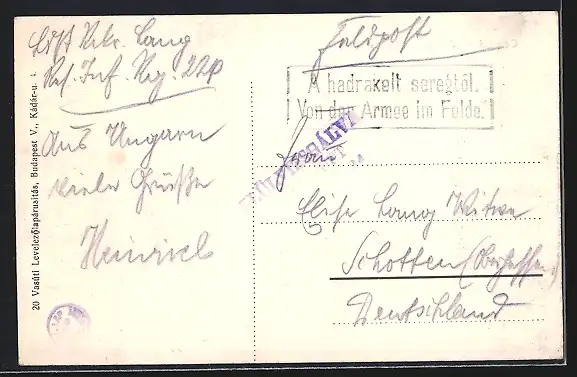 Ldst Rekr. Lang
Res. Inf. Reg. 220
Aus Ungarn
viele Grüße
Heinrich
Feldpost
A hadrakelt seregtől.
Von der Armee im Felde.
Frau
Elise Lang Witwe
Schotten (Oberhessen)
Deutschland
20 Vasúti Levelezőlapárusítás, Budapest V., Kádár-u.